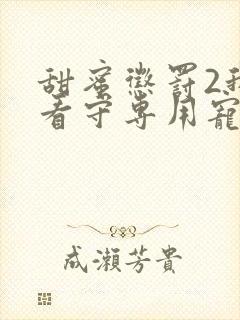 甜蜜懲罰2我
看守專用寵
成瀨芳貴